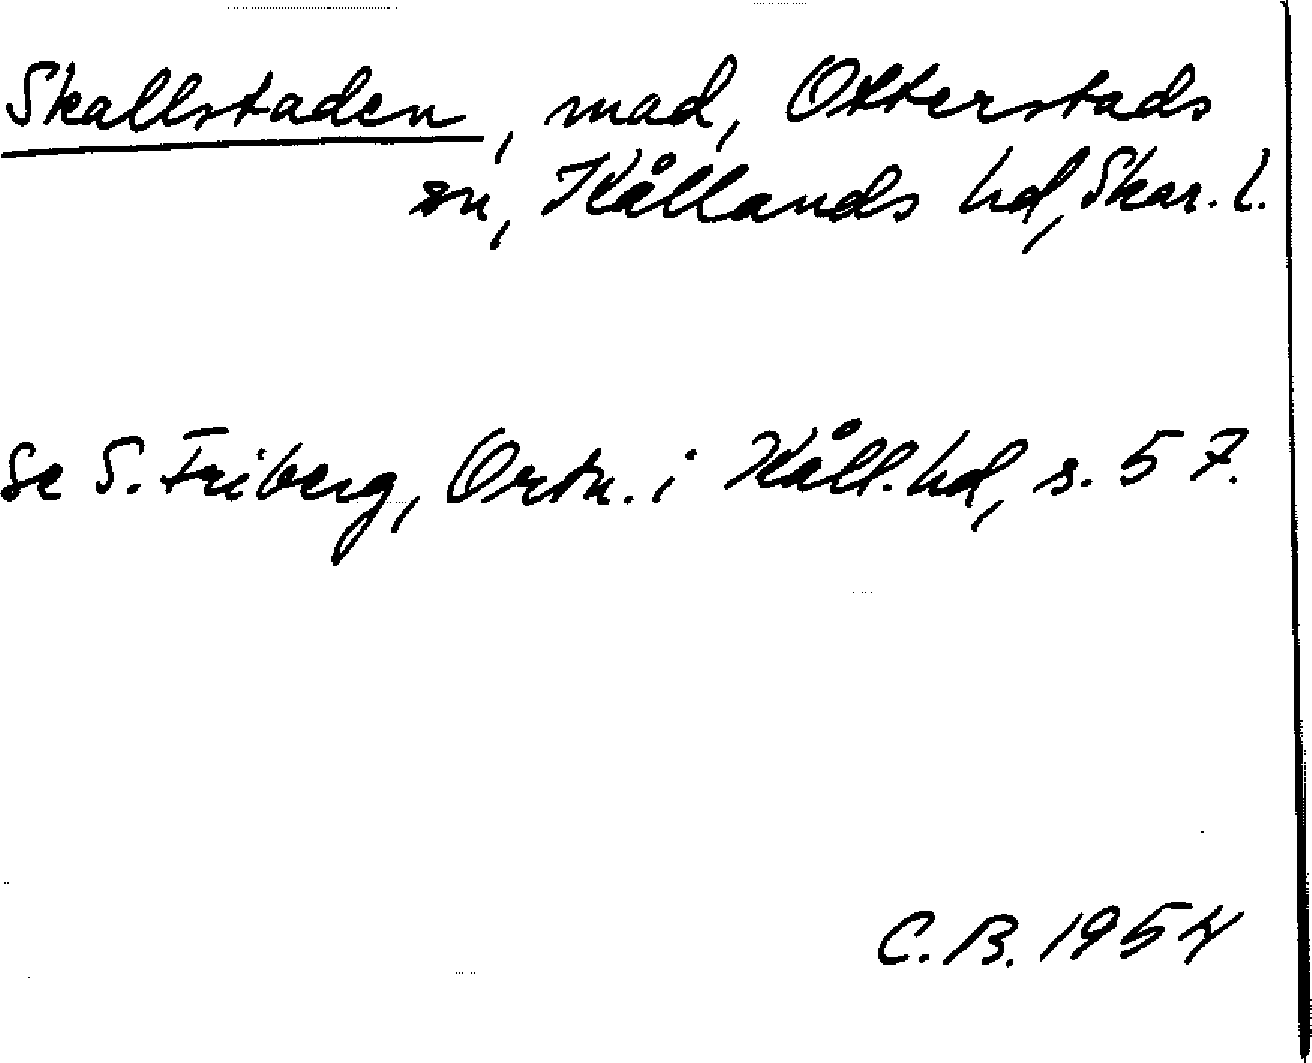 Skallstaden, mad, Otterstads
sn, Kållands hd, Skar. l.
Se S. Friberg, Ortn. i Kåll. hd, s. 57.
C. B. 1954